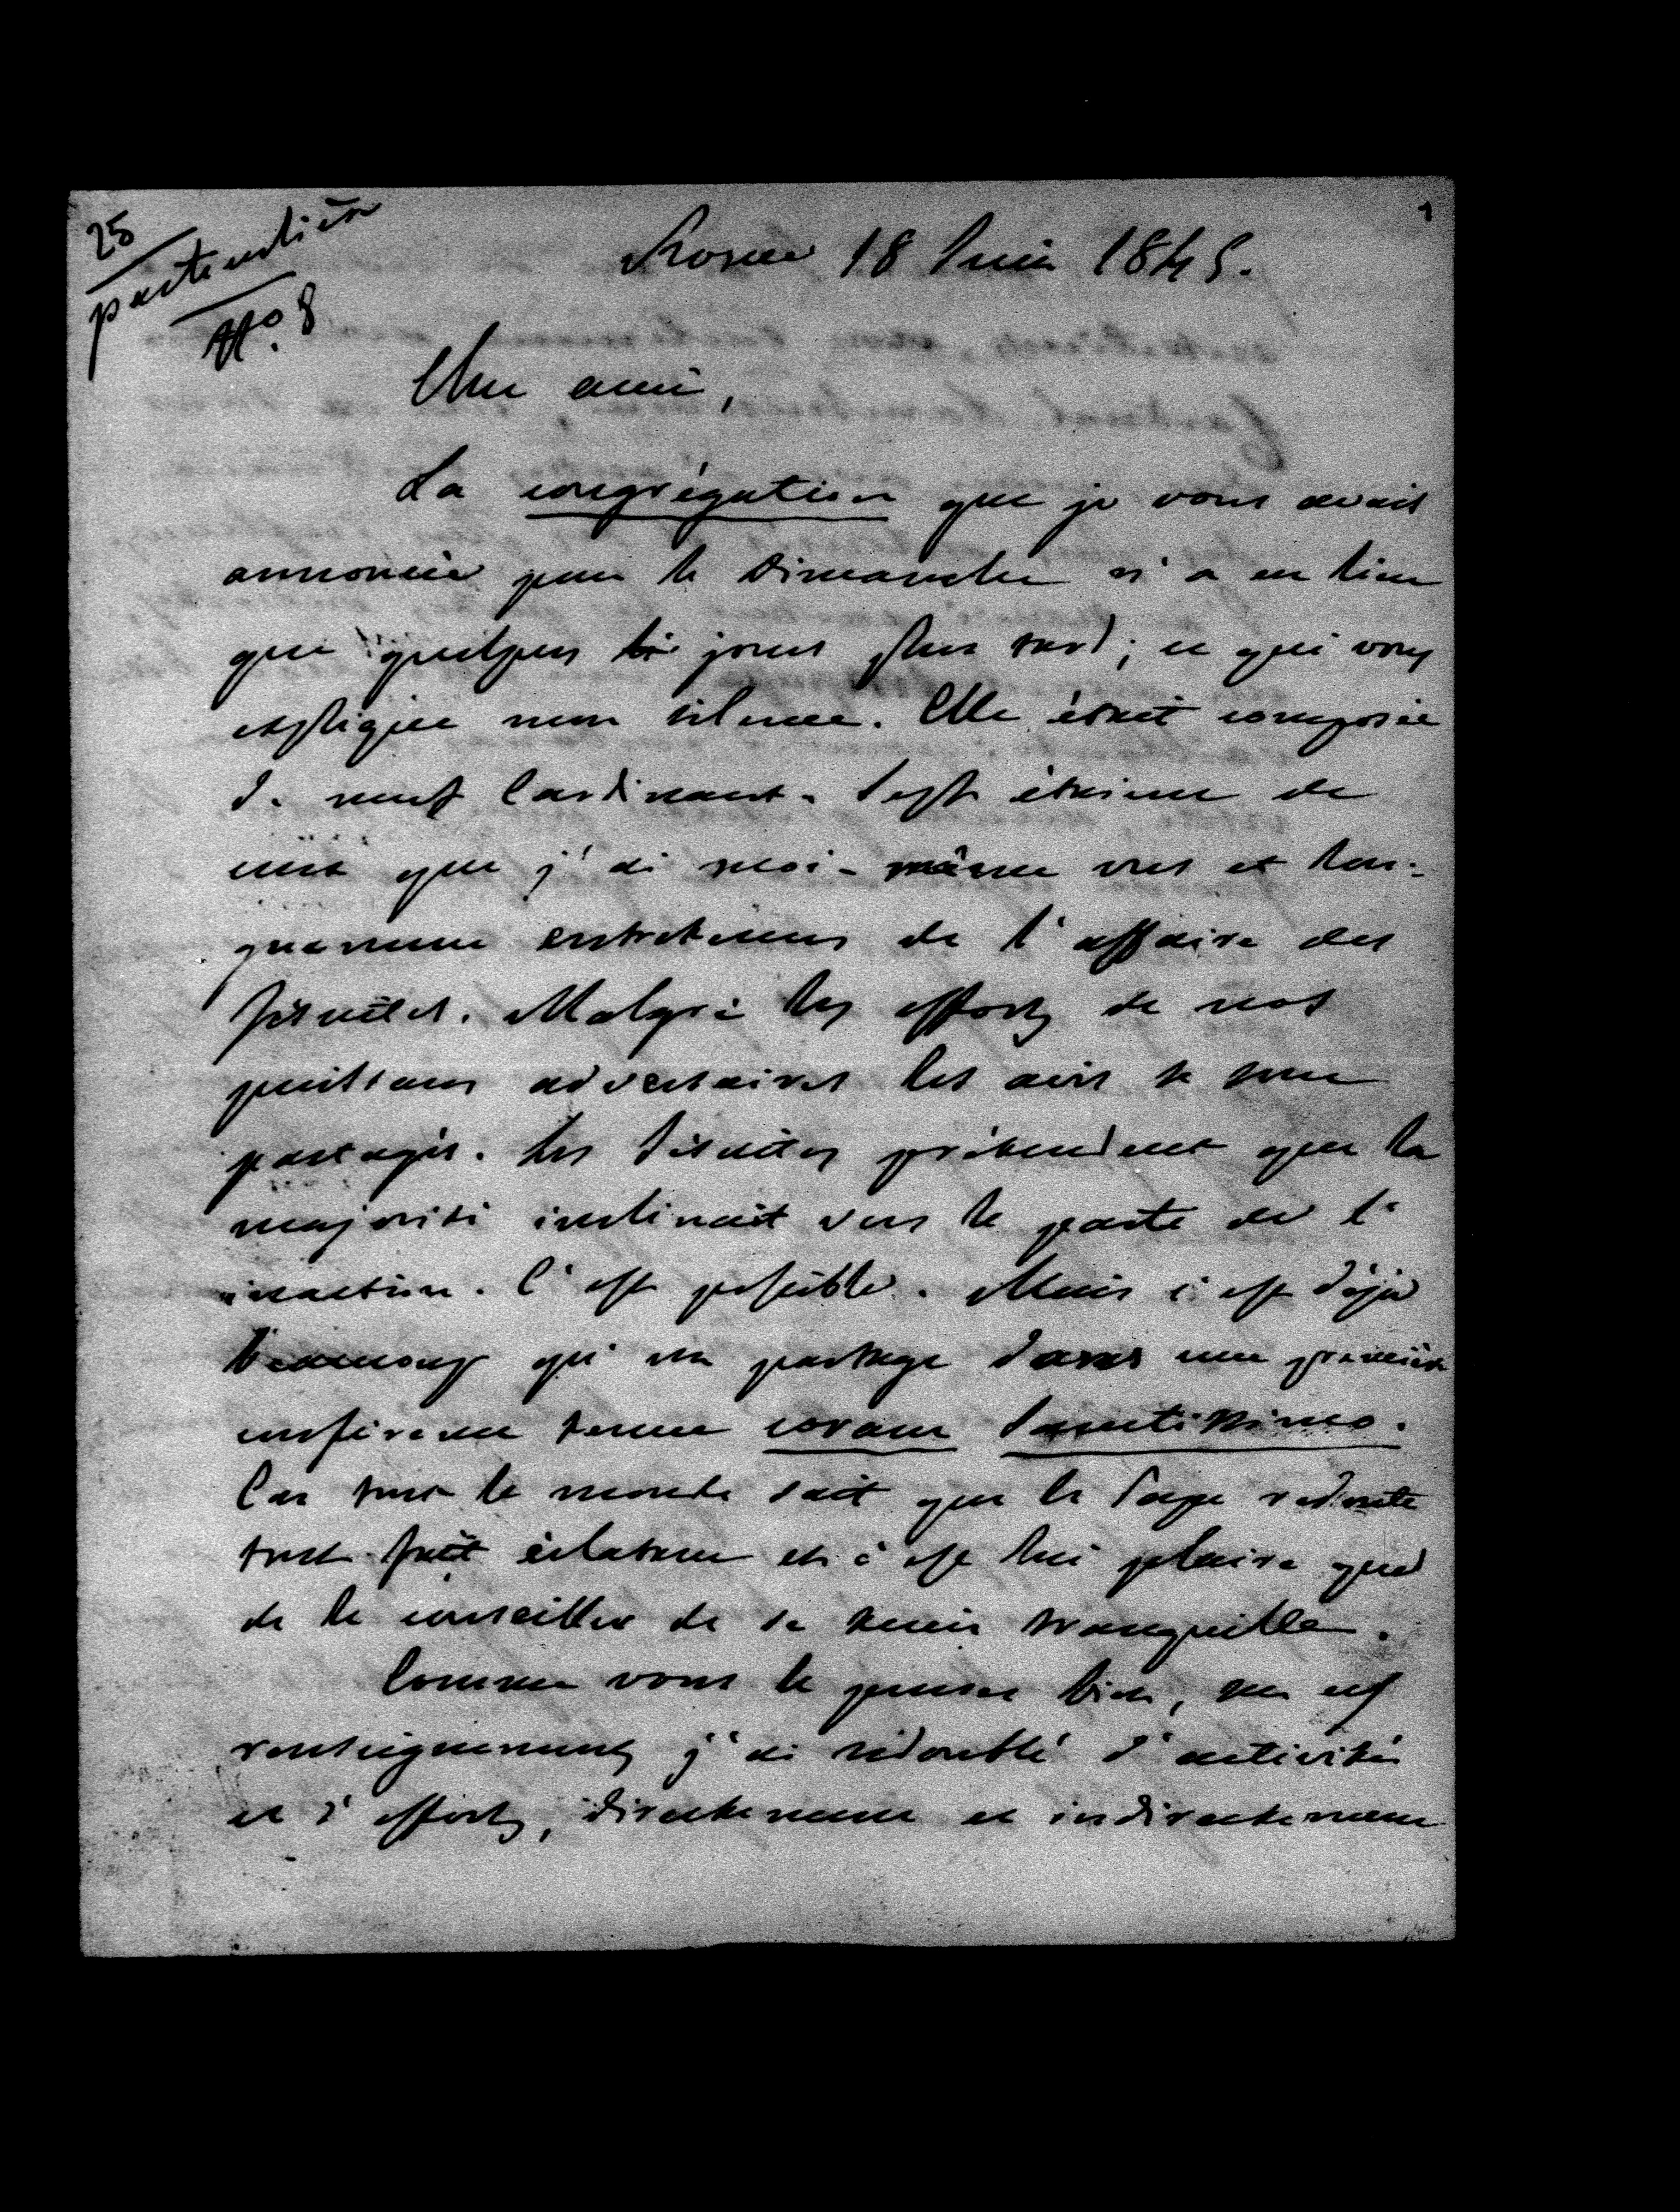 25
particulière
No. 8
1
Rome 18 Juin 1845.
Cher ami,
La congrégation que je vous avais
annoncée pour le Dimanche n'a eu lieu
que quelques jours plus tard ; ce qui vous
explique mon silence. Elle était composée
de neuf Cardinaux. Sept étaient de
ceux que j'ai moi-même vus et lon-
guement entretenus de l'affaire des
Jésuites. Malgré les efforts de nos
puissans adversaires les avis se sont
partagés. Les Jésuites prétendent que la
majorité inclinait vers le parti de l'
inaction. C'est possible. Mais c'est déjà
beaucoup qu'un partage dans une première
conférence tenue coram Sanctissimo.
Car tout le monde sait que le Pape redoute
tout fait éclatant et c'est lui plaire que
de le conseiller de se tenir tranquille.
Comme vous le pensez bien, sur ces
renseignements j'ai redoublé d'activité
et d'efforts, directement et indirectement